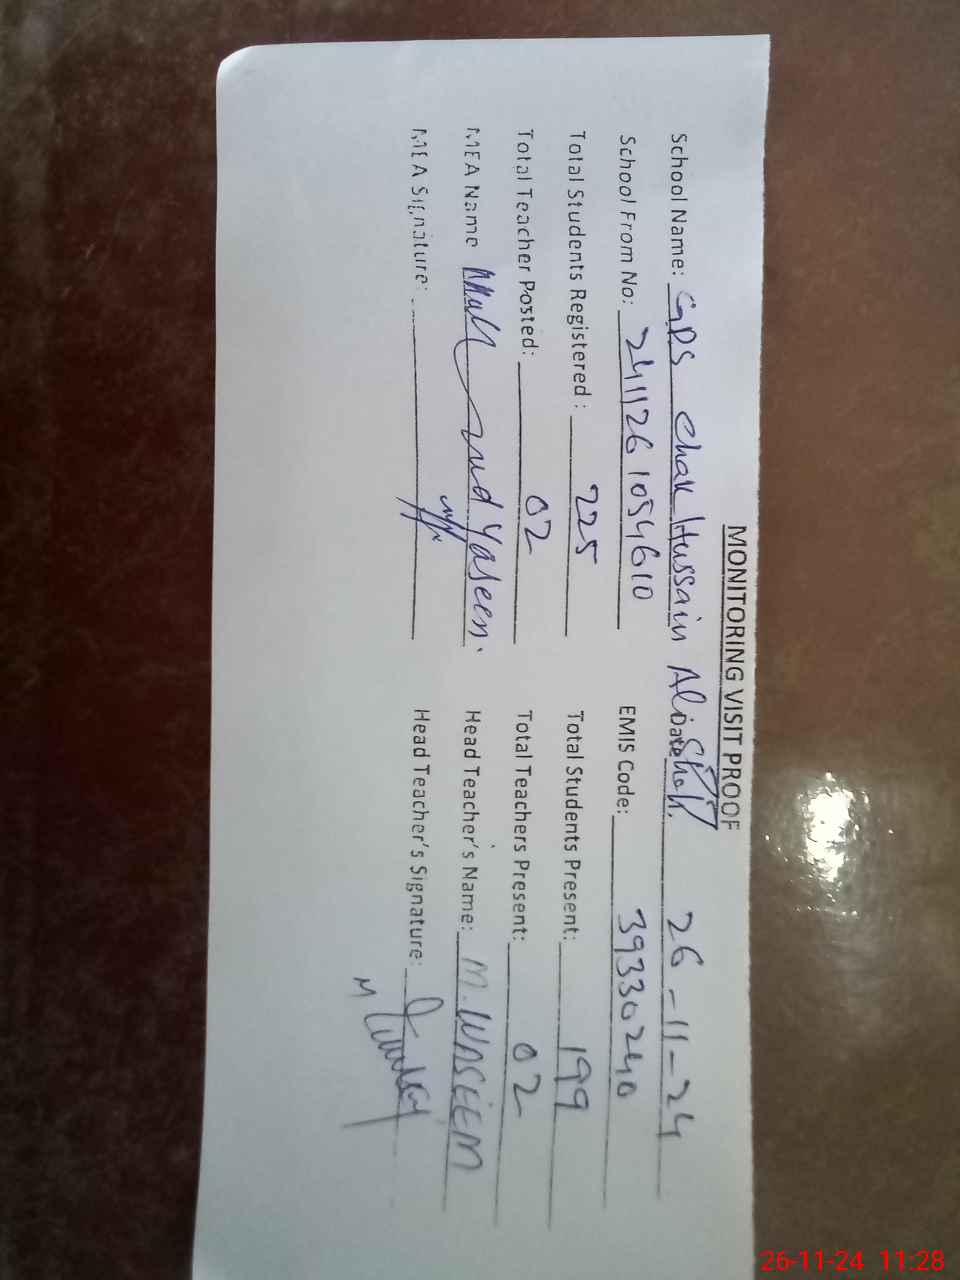 MONITORING VISIT PROOF
School Name: GPS Chak Hussain Ali Shah. Date: 26-11-24
School From No: 241126 1054610 EMIS Code: 39330240
Total Students Registered : 225 Total Students Present: 199
Total Teacher Posted: 02 Total Teachers Present: 02
MEA Name Yaseen. Head Teacher's Name: M. WASEEM
MEA Signature: Head Teacher's Signature:
26-11-24 11:28